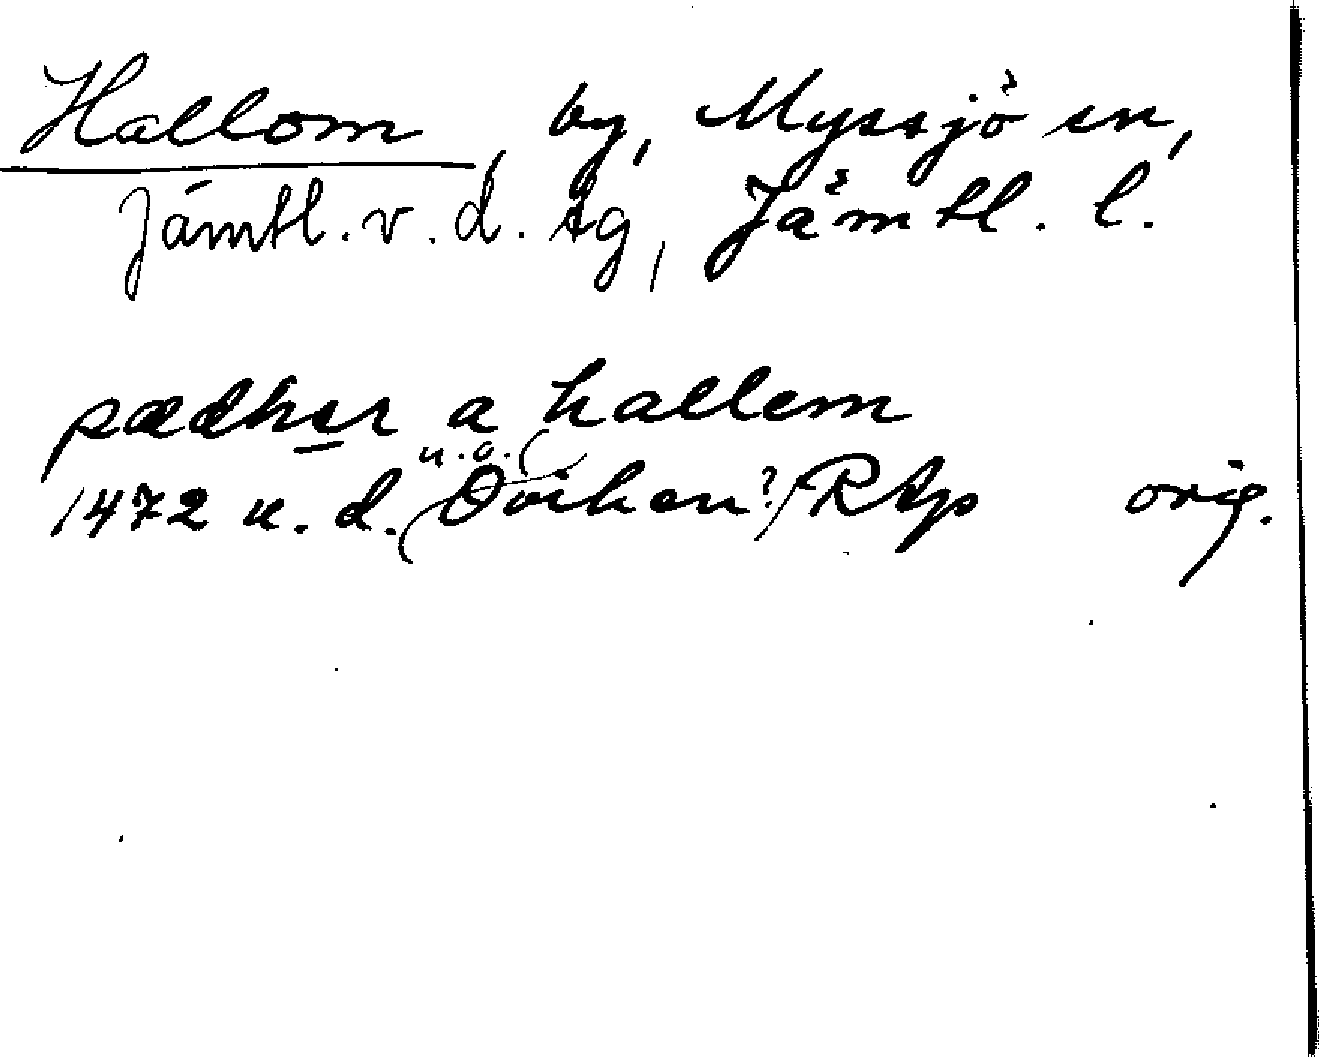 Hallom, by, Myssjö sn,
Jämtl. v. d. tg, Jämtl. l.
pædher a hallem
u. o. (
1472 u. d. (Oviken?) RAp orig.